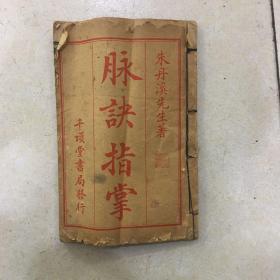 朱丹溪先生著
脉訣指掌
千頃堂書局發行